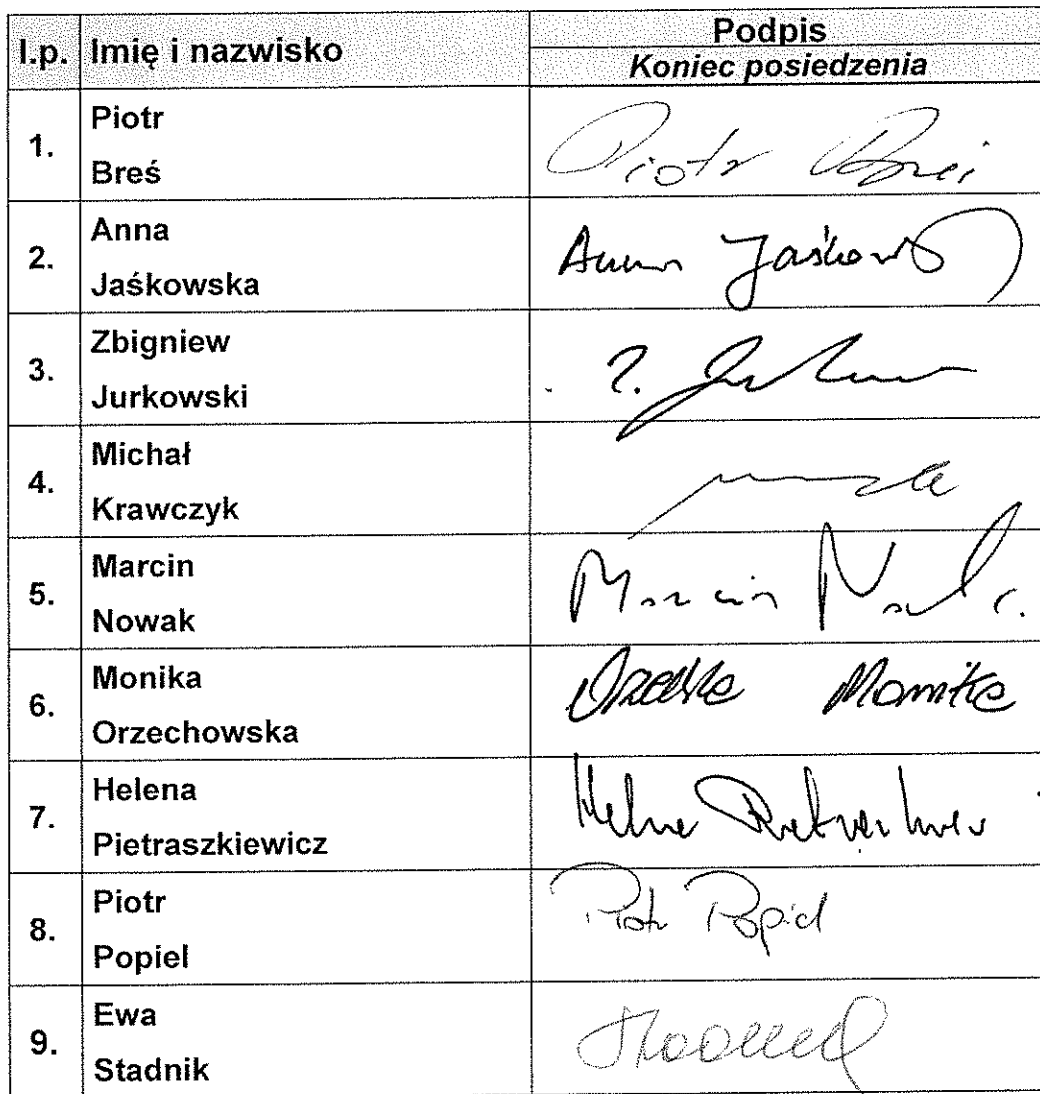 l.p. Imię i nazwisko Podpis
Koniec posiedzenia
1. Piotr
Breś
Piotr Breś
2. Anna
Jaśkowska
Anna Jaśkowska
3. Zbigniew
Jurkowski
4. Michał
Krawczyk
5. Marcin
Nowak
Marcin Nowak
6. Monika
Orzechowska
Monika
7. Helena
Pietraszkiewicz
Helena Pietraszkiewicz
8. Piotr
Popiel
Piotr Popiel
9. Ewa
Stadnik